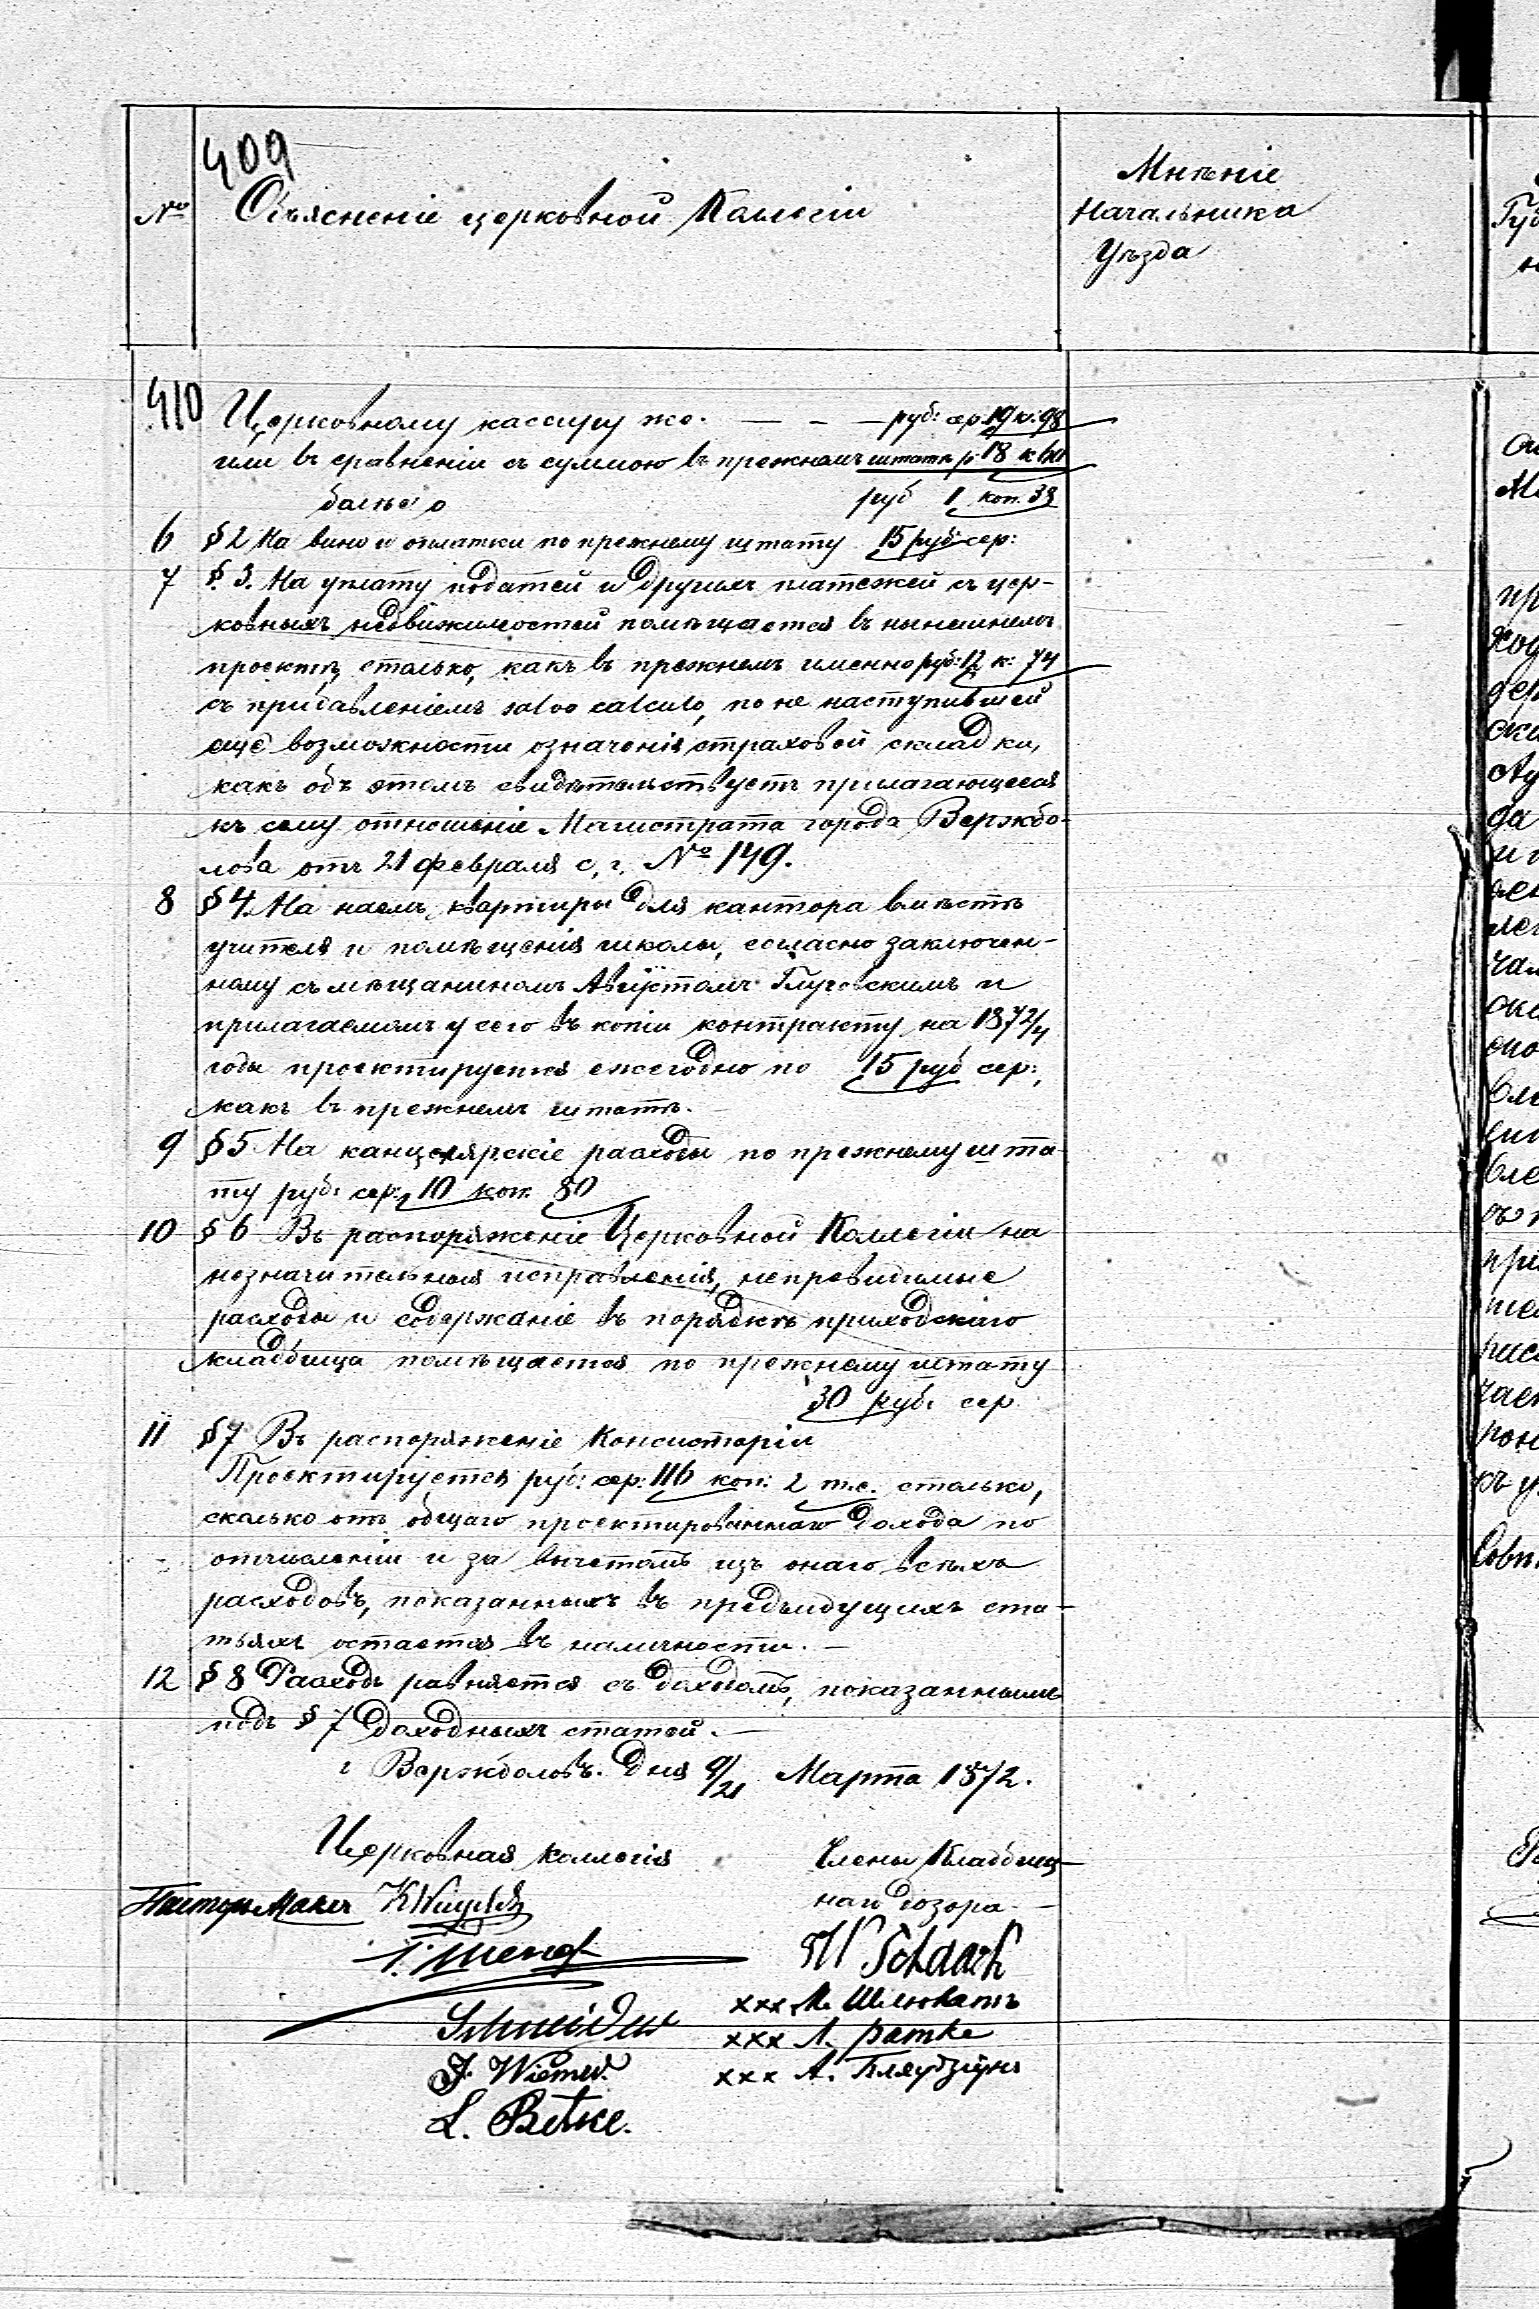 409
№
Объясненіе церковной Коллегіи
Мнѣніе
Начальника
Уѣзда
410
Церковному кассиру же. — - — руб: сер. 19 к: 98
или въ сравненіи съ суммою въ прежнемъ штатѣ р. 18 к 60
болѣе о руб 1 коп. 38
6 § 2 На вино и оплатки по прежнему штату 15 руб сер:
7 §. 3. На уплату податей и другихъ платежей съ цер-
ковныхъ недвижимостей помѣщается въ нынешнемъ
проектѣ, столько, какъ въ прежнемъ именно руб: 12 к: 74
съ прибавленіемъ salvo calculo, по не наступившей
еще возможности означенія страховой складки,
какъ объ этомъ свидѣтельствуетъ прилагающееся
къ сему отношеніе Магистрата города Вержбо-
лова отъ 21 февраля с, г. № 149.
8 § 4. На наемъ квартиры для кантора вмѣстѣ
учителя и помѣщенія школы, согласно заключен-
ному съ мѣщаниномъ Августомъ
прилагаемомъ у сего въ копіи контракту на 1872/4
годы проектируется ежегодно по 15 руб сер:,
какъ въ прежнемъ штатѣ. -
9 § 5. На канцелярскіе расходы по прежнему шта-
ту руб: сер: 10 коп. 80
10 § 6 Въ распоряженіе Церковной Коллегіи на
незначительныя исправленія, непревидимые
расходы и содержаніе въ порядкѣ приходскаго
кладбища помѣщается по прежнему штату
30 руб: сер
11 § 7 Въ распоряженіе Консисторіи
Проектируется руб: сер: 116 коп: 2 т.е. столько,
сколько отъ общаго проектированнаго дохода по
отчисленіи и за вычетомъ изъ онаго всѣхъ
расходовъ, показанныхъ въ предъидущихъ ста-
тьяхъ остается въ наличности. —
12 § 8 Расходъ равняется съ доходомъ, показаннымъ
подъ § 7 доходныхъ статей. —
г Вержболовъ. Дня 9/21 Марта 1872.
Церковная коллегія
Члены Кладбищ-
наго дозора. —
Пасторъ
Schneider
xxx М.
xxx Л. Ратке
J.
xxx А.
L. Betke.